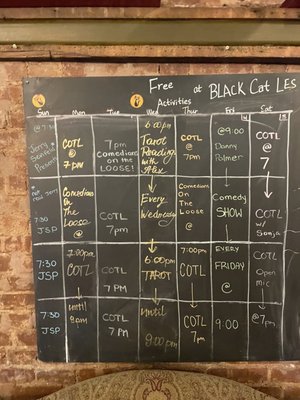 Free at BLACK Cat LES
Activities
Sun Mon Tue Wed Thur Fri Sat
@7:30
Jerry
Presents
COTL
@
7pm
7pm
Comedians
ON THE
LOOSE!
6:00pm
Tarot
Reading
with
COTL
@
7pm
@9:00
Danny
Palmer
COTL
@
7
7:30
JSP
Comedians
On
The
Loose
@
COTL
7pm
Every
Wednesday
Comedians
On
The
Loose
@
Comedy
SHOW
COTL
w/
Sonja
7:30
JSP
7:00pm
COTL
COTL
7 PM
6:00pm
TAROT
7:00pm
COTL
EVERY
FRIDAY
@
COTL
Open
Mic
7:30
JSP
until
COTL
7 PM
until
9:00pm
COTL
7pm
9:00
@7pm